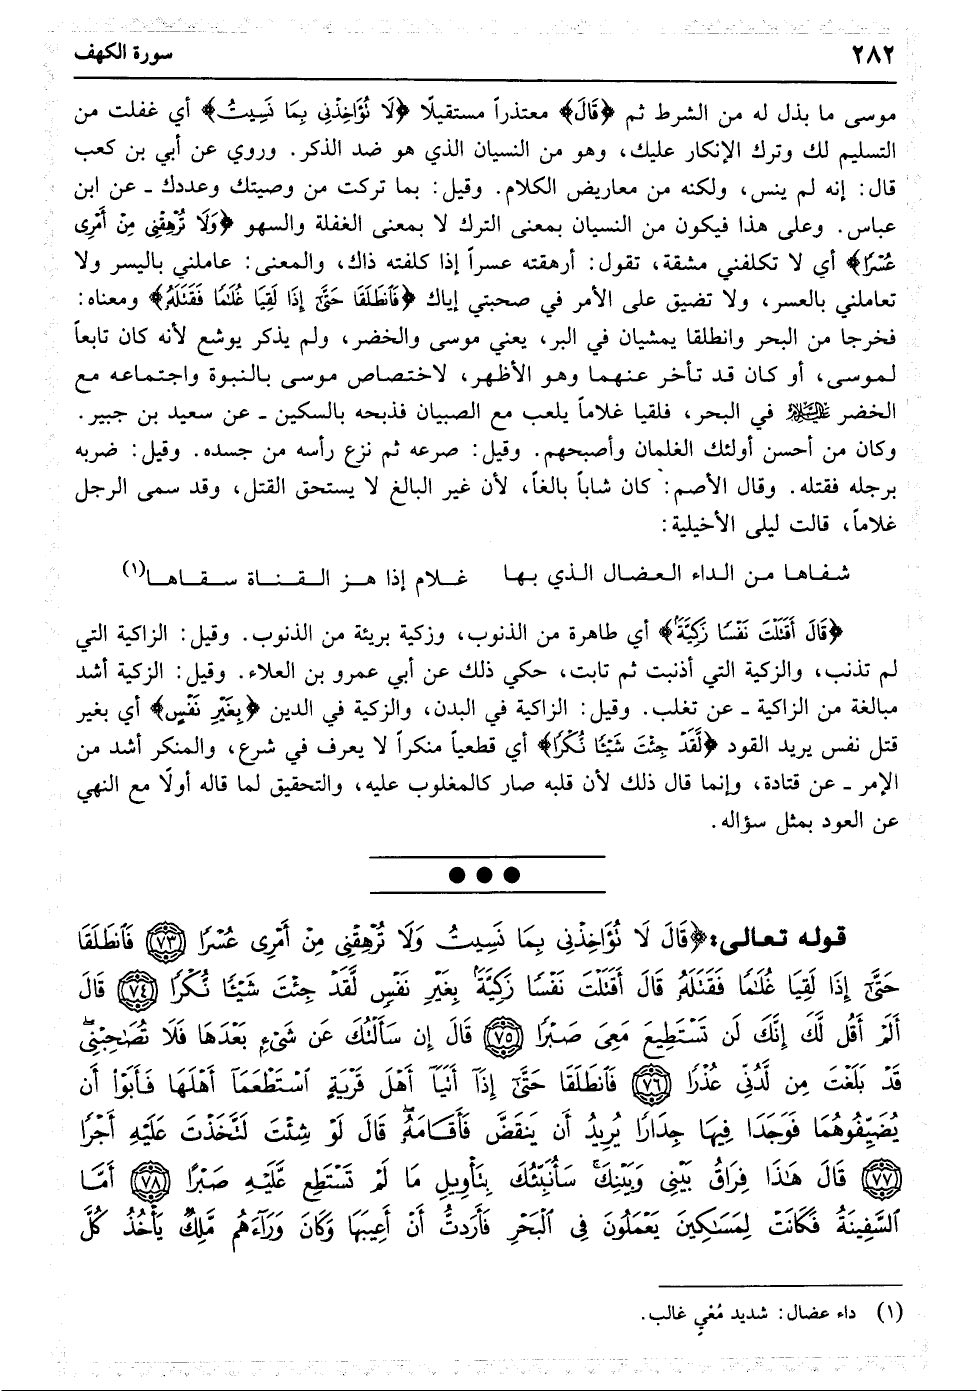 ٢٨٢ سورة الكهف
موسى ما بذل له من الشرط ثم ﴿قَالَ﴾ معتذراً مستقيلًا ﴿لَا تُؤَاخِذْنِي بِمَا نَسِيتُ﴾ أي غفلت من
التسليم لك وترك الإنكار عليك، وهو من النسيان الذي هو ضد الذكر. وروي عن أبي بن كعب
قال: إنه لم ينس، ولكنه من معاريض الكلام. وقيل: بما تركت من وصيتك وعددك ـ عن ابن
عباس. وعلى هذا فيكون من النسيان بمعنى الترك لا بمعنى الغفلة والسهو ﴿وَلَا تُرْهِقْنِي مِنْ أَمْرِي
عُسْرًا﴾ أي لا تكلفني مشقة، تقول: أرهقته عسراً إذا كلفته ذاك، والمعنى: عاملني باليسر ولا
تعاملني بالعسر، ولا تضيق على الأمر في صحبتي إياك ﴿فَانطَلَقَا حَتَّىٰ إِذَا لَقِيَا غُلَامًا فَقَتَلَهُ﴾ ومعناه:
فخرجا من البحر وانطلقا يمشيان في البر، يعني موسى والخضر، ولم يذكر يوشع لأنه كان تابعاً
لموسى، أو كان قد تأخر عنهما وهو الأظهر، لاختصاص موسى بالنبوة واجتماعه مع
الخضر عليه السلام في البحر، فلقيا غلاماً يلعب مع الصبيان فذبحه بالسكين ـ عن سعيد بن جبير.
وكان من أحسن أولئك الغلمان وأصبحهم. وقيل: صرعه ثم نزع رأسه من جسده. وقيل: ضربه
برجله فقتله. وقال الأصم: كان شاباً بالغاً، لأن غير البالغ لا يستحق القتل، وقد سمى الرجل
غلاماً، قالت ليلى الأخيلية:
شفاها من الداء العضال الذي بها غلام إذا هز القناة سقاها(١)
﴿قَالَ أَقَتَلْتَ نَفْسًا زَكِيَّةً﴾ أي طاهرة من الذنوب، وزكية بريئة من الذنوب. وقيل: الزاكية التي
لم تذنب، والزكية التي أذنبت ثم تابت، حكي ذلك عن أبي عمرو بن العلاء. وقيل: الزكية أشد
مبالغة من الزاكية ـ عن تغلب. وقيل: الزاكية في البدن، والزكية في الدين ﴿بِغَيْرِ نَفْسٍ﴾ أي بغير
قتل نفس يريد القود ﴿لَّقَدْ جِئْتَ شَيْئًا نُّكْرًا﴾ أي قطعياً منكراً لا يعرف في شرع، والمنكر أشد من
الإمر ـ عن قتادة، وإنما قال ذلك لأن قلبه صار كالمغلوب عليه، والتحقيق لما قاله أولًا مع النهي
عن العود بمثل سؤاله.
قوله تعالى: ﴿قَالَ لَا تُؤَاخِذْنِي بِمَا نَسِيتُ وَلَا تُرْهِقْنِي مِنْ أَمْرِي عُسْرًا ٧٣ فَانطَلَقَا
حَتَّىٰ إِذَا لَقِيَا غُلَامًا فَقَتَلَهُ قَالَ أَقَتَلْتَ نَفْسًا زَكِيَّةً بِغَيْرِ نَفْسٍ لَّقَدْ جِئْتَ شَيْئًا نُّكْرًا ٧٤ قَالَ
أَلَمْ أَقُل لَّكَ إِنَّكَ لَن تَسْتَطِيعَ مَعِيَ صَبْرًا ٧٥ قَالَ إِن سَأَلْتُكَ عَن شَيْءٍ بَعْدَهَا فَلَا تُصَاحِبْنِي ۖ
قَدْ بَلَغْتَ مِن لَّدُنِّي عُذْرًا ٧٦ فَانطَلَقَا حَتَّىٰ إِذَا أَتَيَا أَهْلَ قَرْيَةٍ اسْتَطْعَمَا أَهْلَهَا فَأَبَوْا أَن
يُضَيِّفُوهُمَا فَوَجَدَا فِيهَا جِدَارًا يُرِيدُ أَن يَنقَضَّ فَأَقَامَهُ ۖ قَالَ لَوْ شِئْتَ لَتَّخَذْتَ عَلَيْهِ أَجْرًا
٧٧ قَالَ هَٰذَا فِرَاقُ بَيْنِي وَبَيْنِكَ ۚ سَأُنَبِّئُكَ بِتَأْوِيلِ مَا لَمْ تَسْتَطِع عَّلَيْهِ صَبْرًا ٧٨ أَمَّا
السَّفِينَةُ فَكَانَتْ لِمَسَاكِينَ يَعْمَلُونَ فِي الْبَحْرِ فَأَرَدتُّ أَنْ أَعِيبَهَا وَكَانَ وَرَاءَهُم مَّلِكٌ يَأْخُذُ كُلَّ
(١) داء عضال: شديد مُعْيٍ غالب.